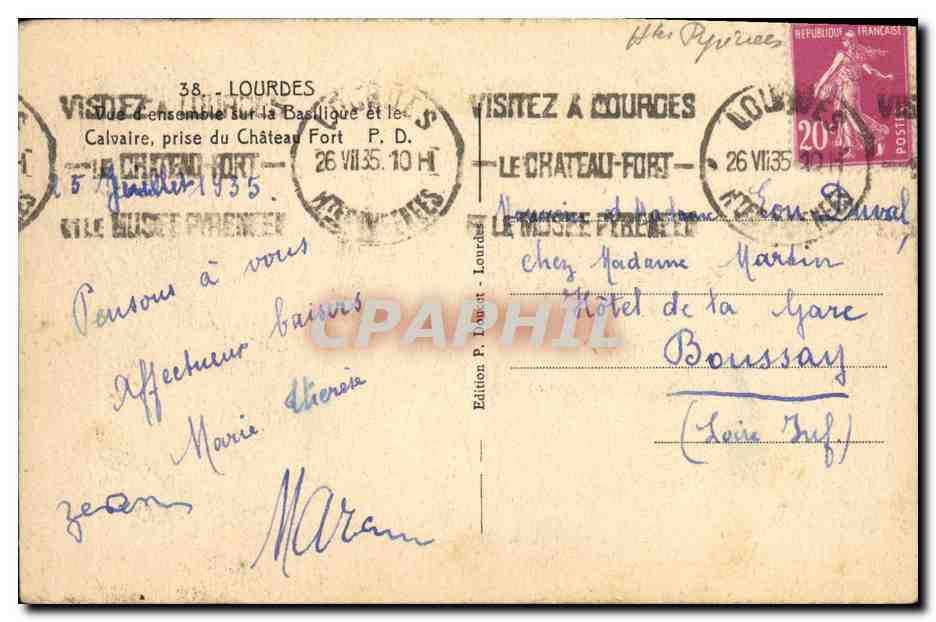 Htes Pyrénées
REPUBLIQUE FRANÇAISE
20c
POSTES
38. - LOURDES
Vue d'ensemble sur la Basilique et le
Calvaire, prise du Château Fort P. D.
VISITEZ A LOURDES
LE CHATEAU-FORT
ET LE MUSEE PYRENEEN
LOURDES
26 VII 35. 10 H
HTES PYRENEES
VISITEZ A LOURDES
LE CHATEAU-FORT
ET LE MUSEE PYRENEEN
LOURDES
26 VII 35 10 H
HTES PYRENEES
25 Juillet 1935.
Pensons à vous
Affectueux baisers
Marie. Thérèse
Edition P. Doucet - Lourdes
Monsieur et Madame Léon Duval,
chez Madame Martin
Hôtel de la Gare
Boussay
(Loire Inf.)
CPAPHIL